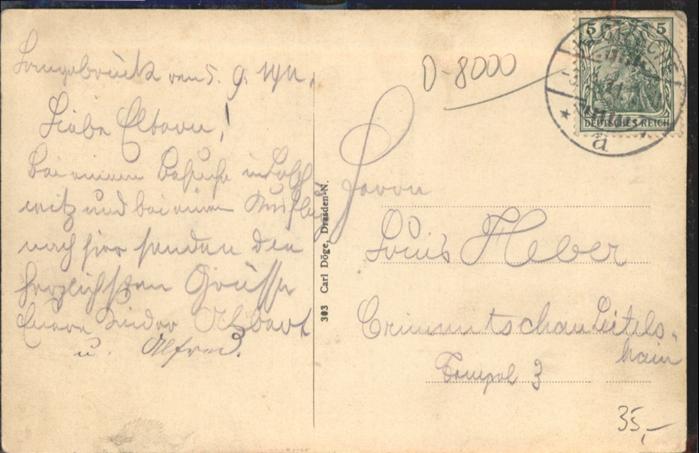 Langebrück den 5. 9. 1911.
Liebe Eltern!
Bei einem Besuche in
witz und bei einem Ausflug
nach hier senden die
herzlichsten Grüsse
Eure Kinder
u. Alfred.
303 Carl Döge, Dresden-N.
D-8000
5 5
DEUTSCHES REICH
a
Herrn
Louis Heber
Crimmitschau Leitels-
hain
3
35,-